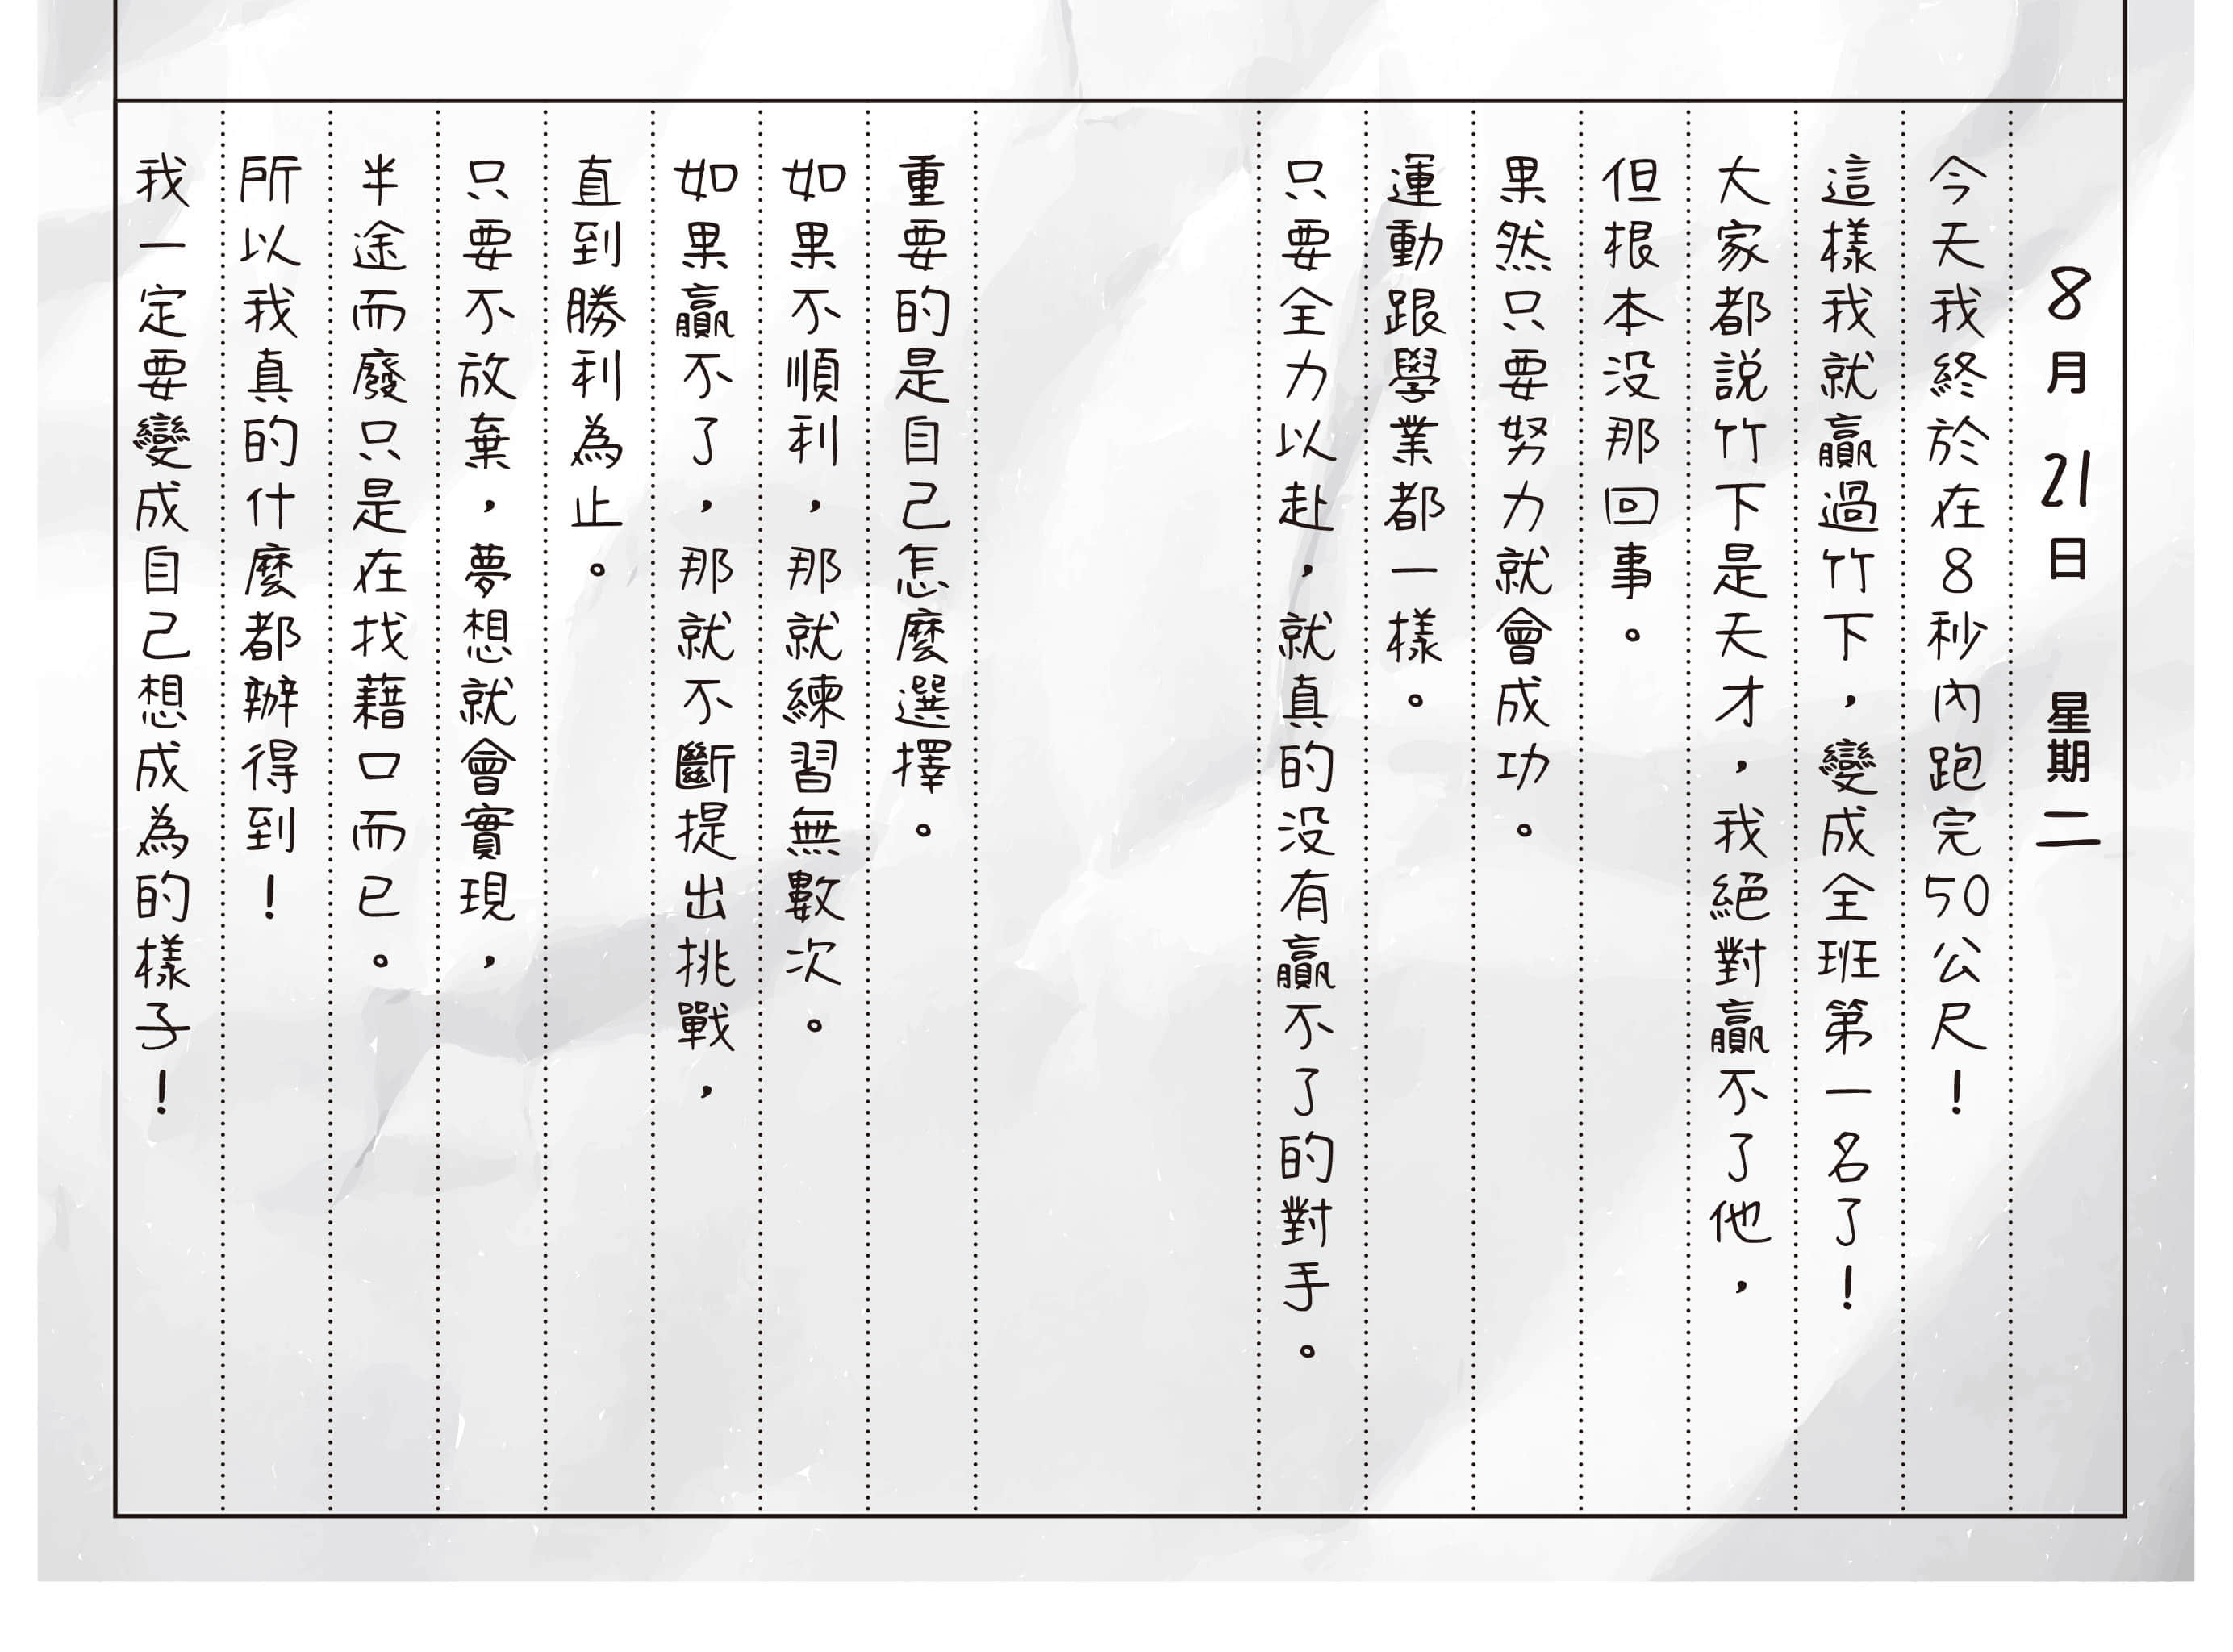 8月21日 星期二
今天我終於在8秒內跑完50公尺！
這樣我就贏過竹下，變成全班第一名了！
大家都說竹下是天才，我絕對贏不了他，
但根本沒那回事。
果然只要努力就會成功。
運動跟學業都一樣。
只要全力以赴，就真的沒有贏不了的對手。
重要的是自己怎麼選擇。
如果不順利，那就練習無數次。
如果贏不了，那就不斷提出挑戰，
直到勝利為止。
只要不放棄，夢想就會實現，
半途而廢只是在找藉口而已。
所以我真的什麼都辦得到！
我一定要變成自己想成為的樣子！